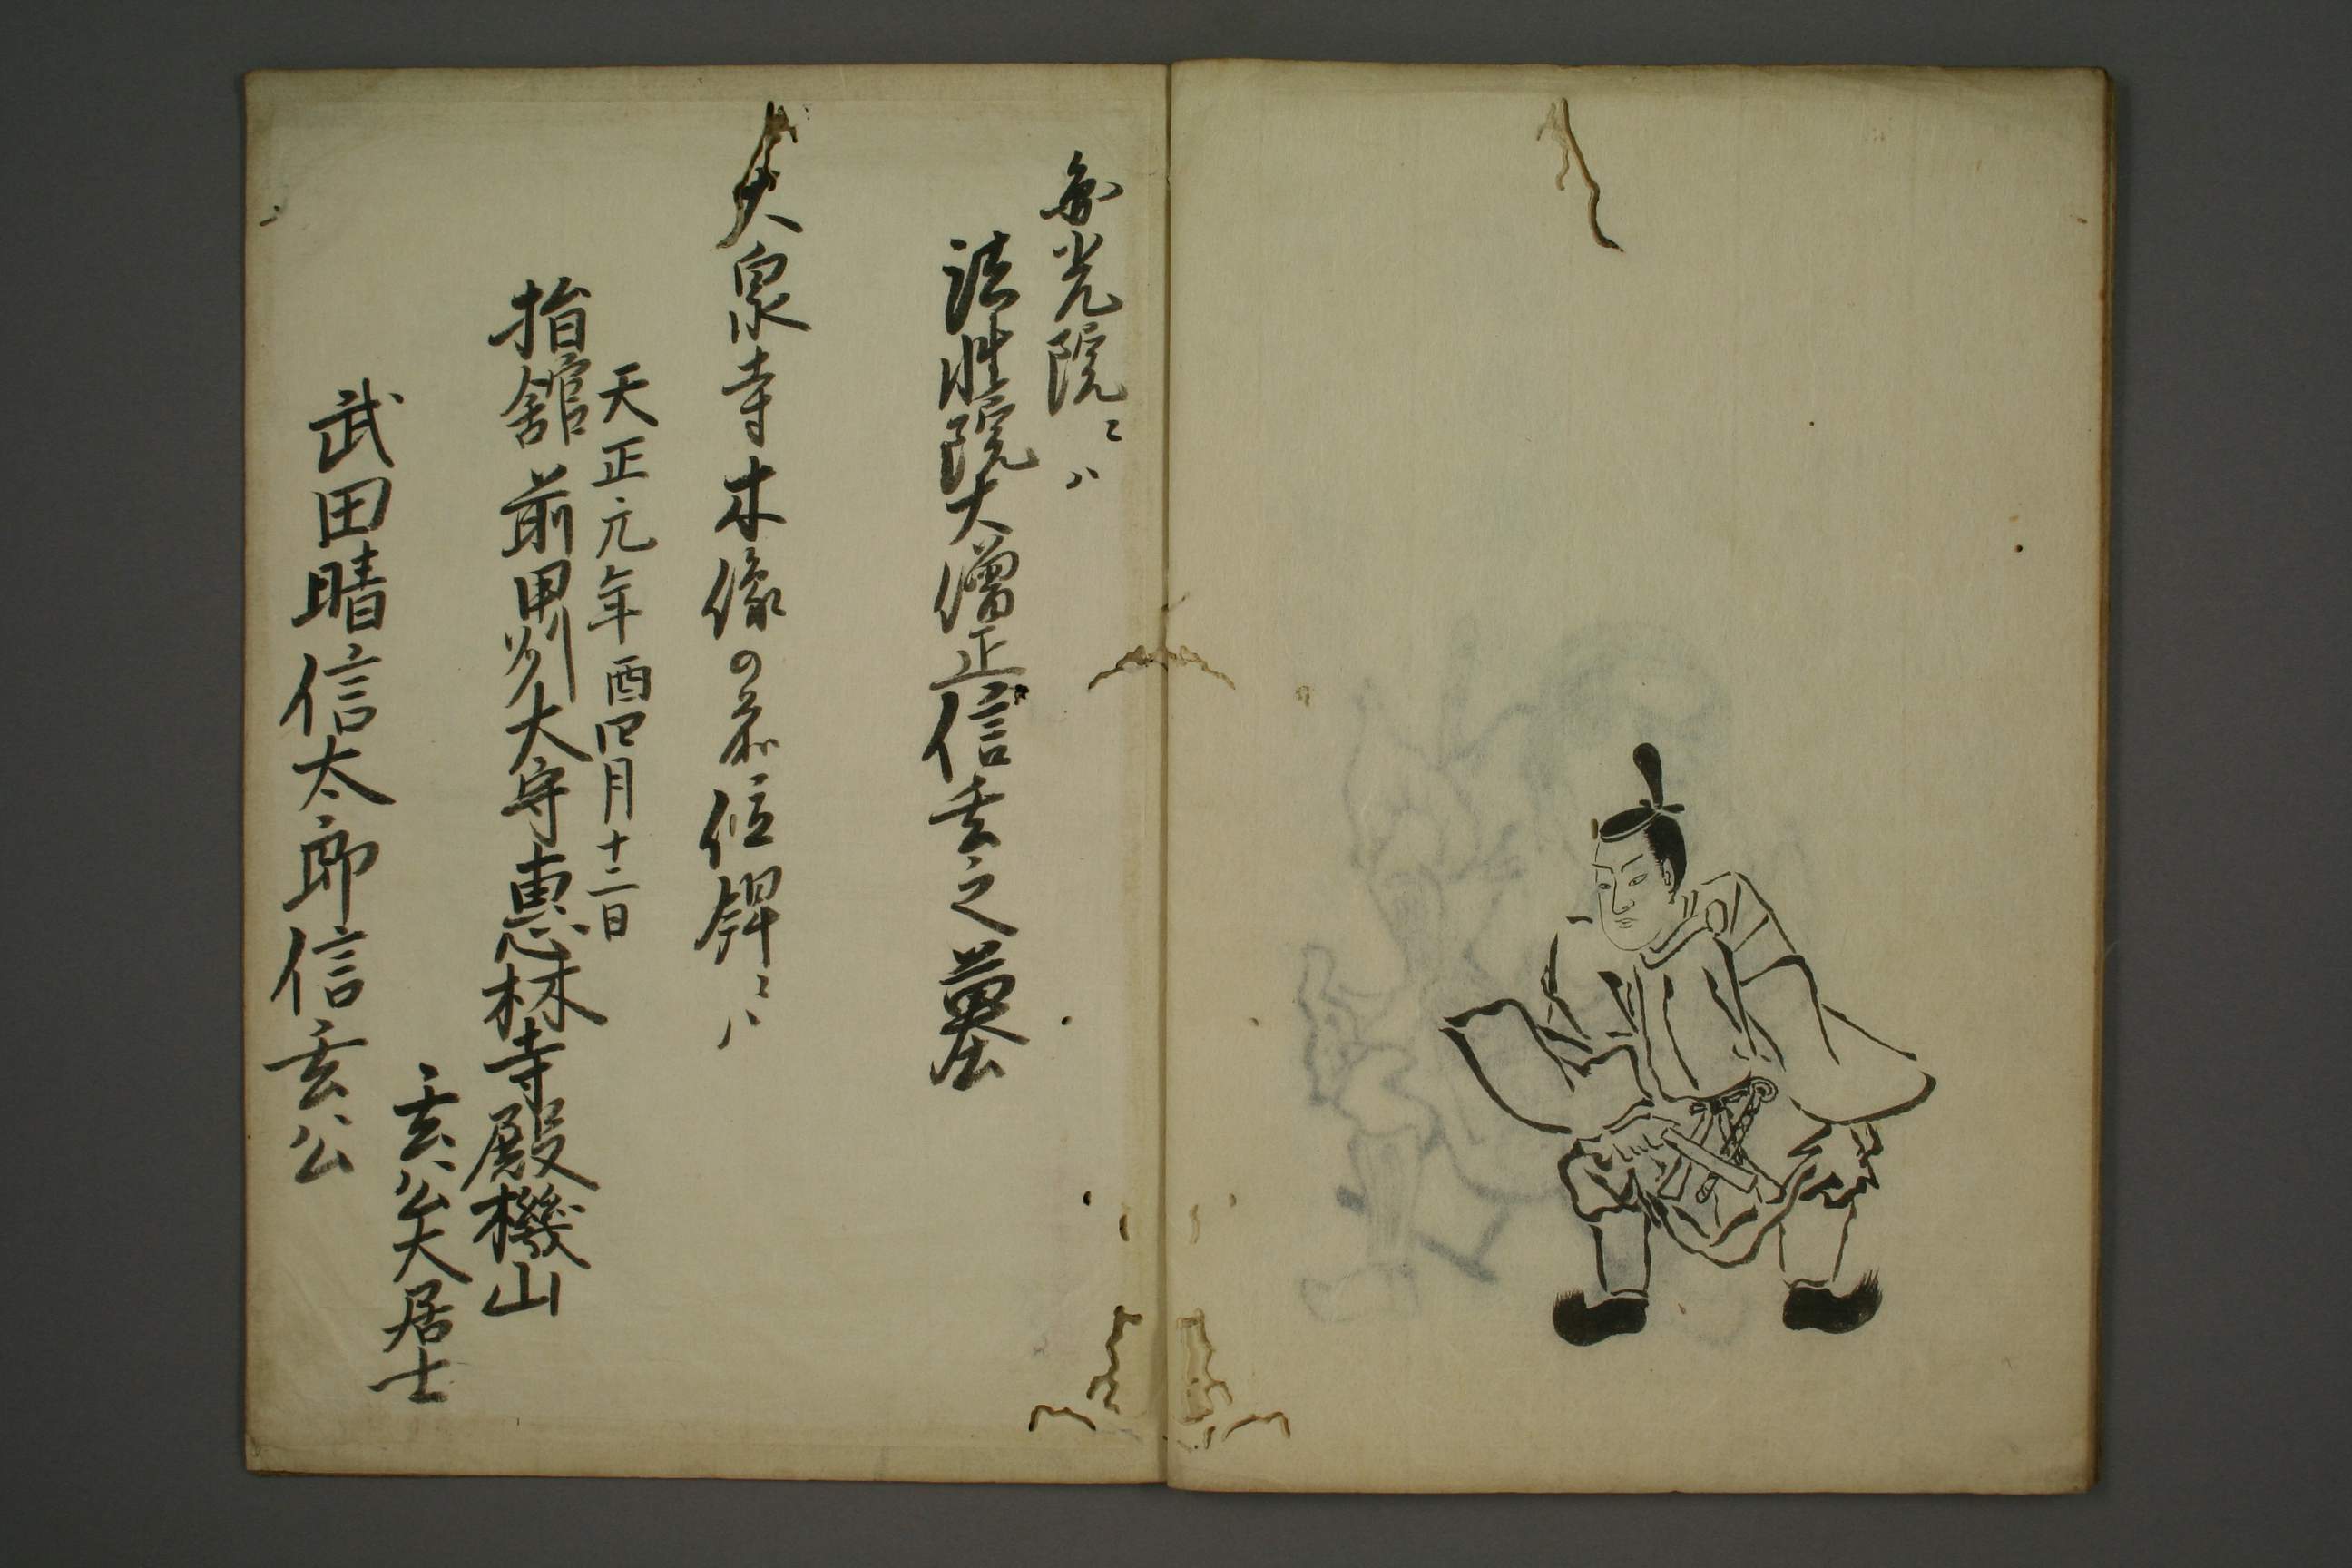 光院ニハ
法性院大僧正信玄之墓
大泉寺木像の前位牌ニハ
天正元年酉四月十二日
指舘前甲州大守惠林寺殿機山
玄公大居士
武田晴信太郎信玄公